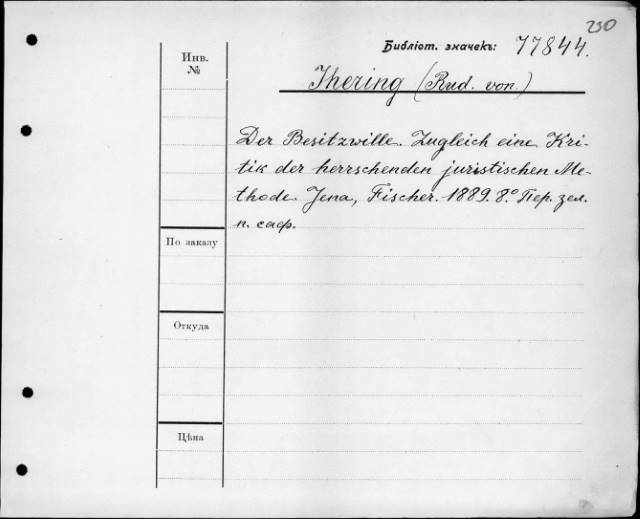 230
Библіот. значекъ: 77844.
Инв.
№
Ihering (Rud. von.)
Der Besitzwille. Zugleich eine Kri-
tik der herrschenden juristischen Me-
thode. Jena, Fischer. 1889. 8.° Пер. зел.
п. саф.
По заказу
Откуда
Цѣна